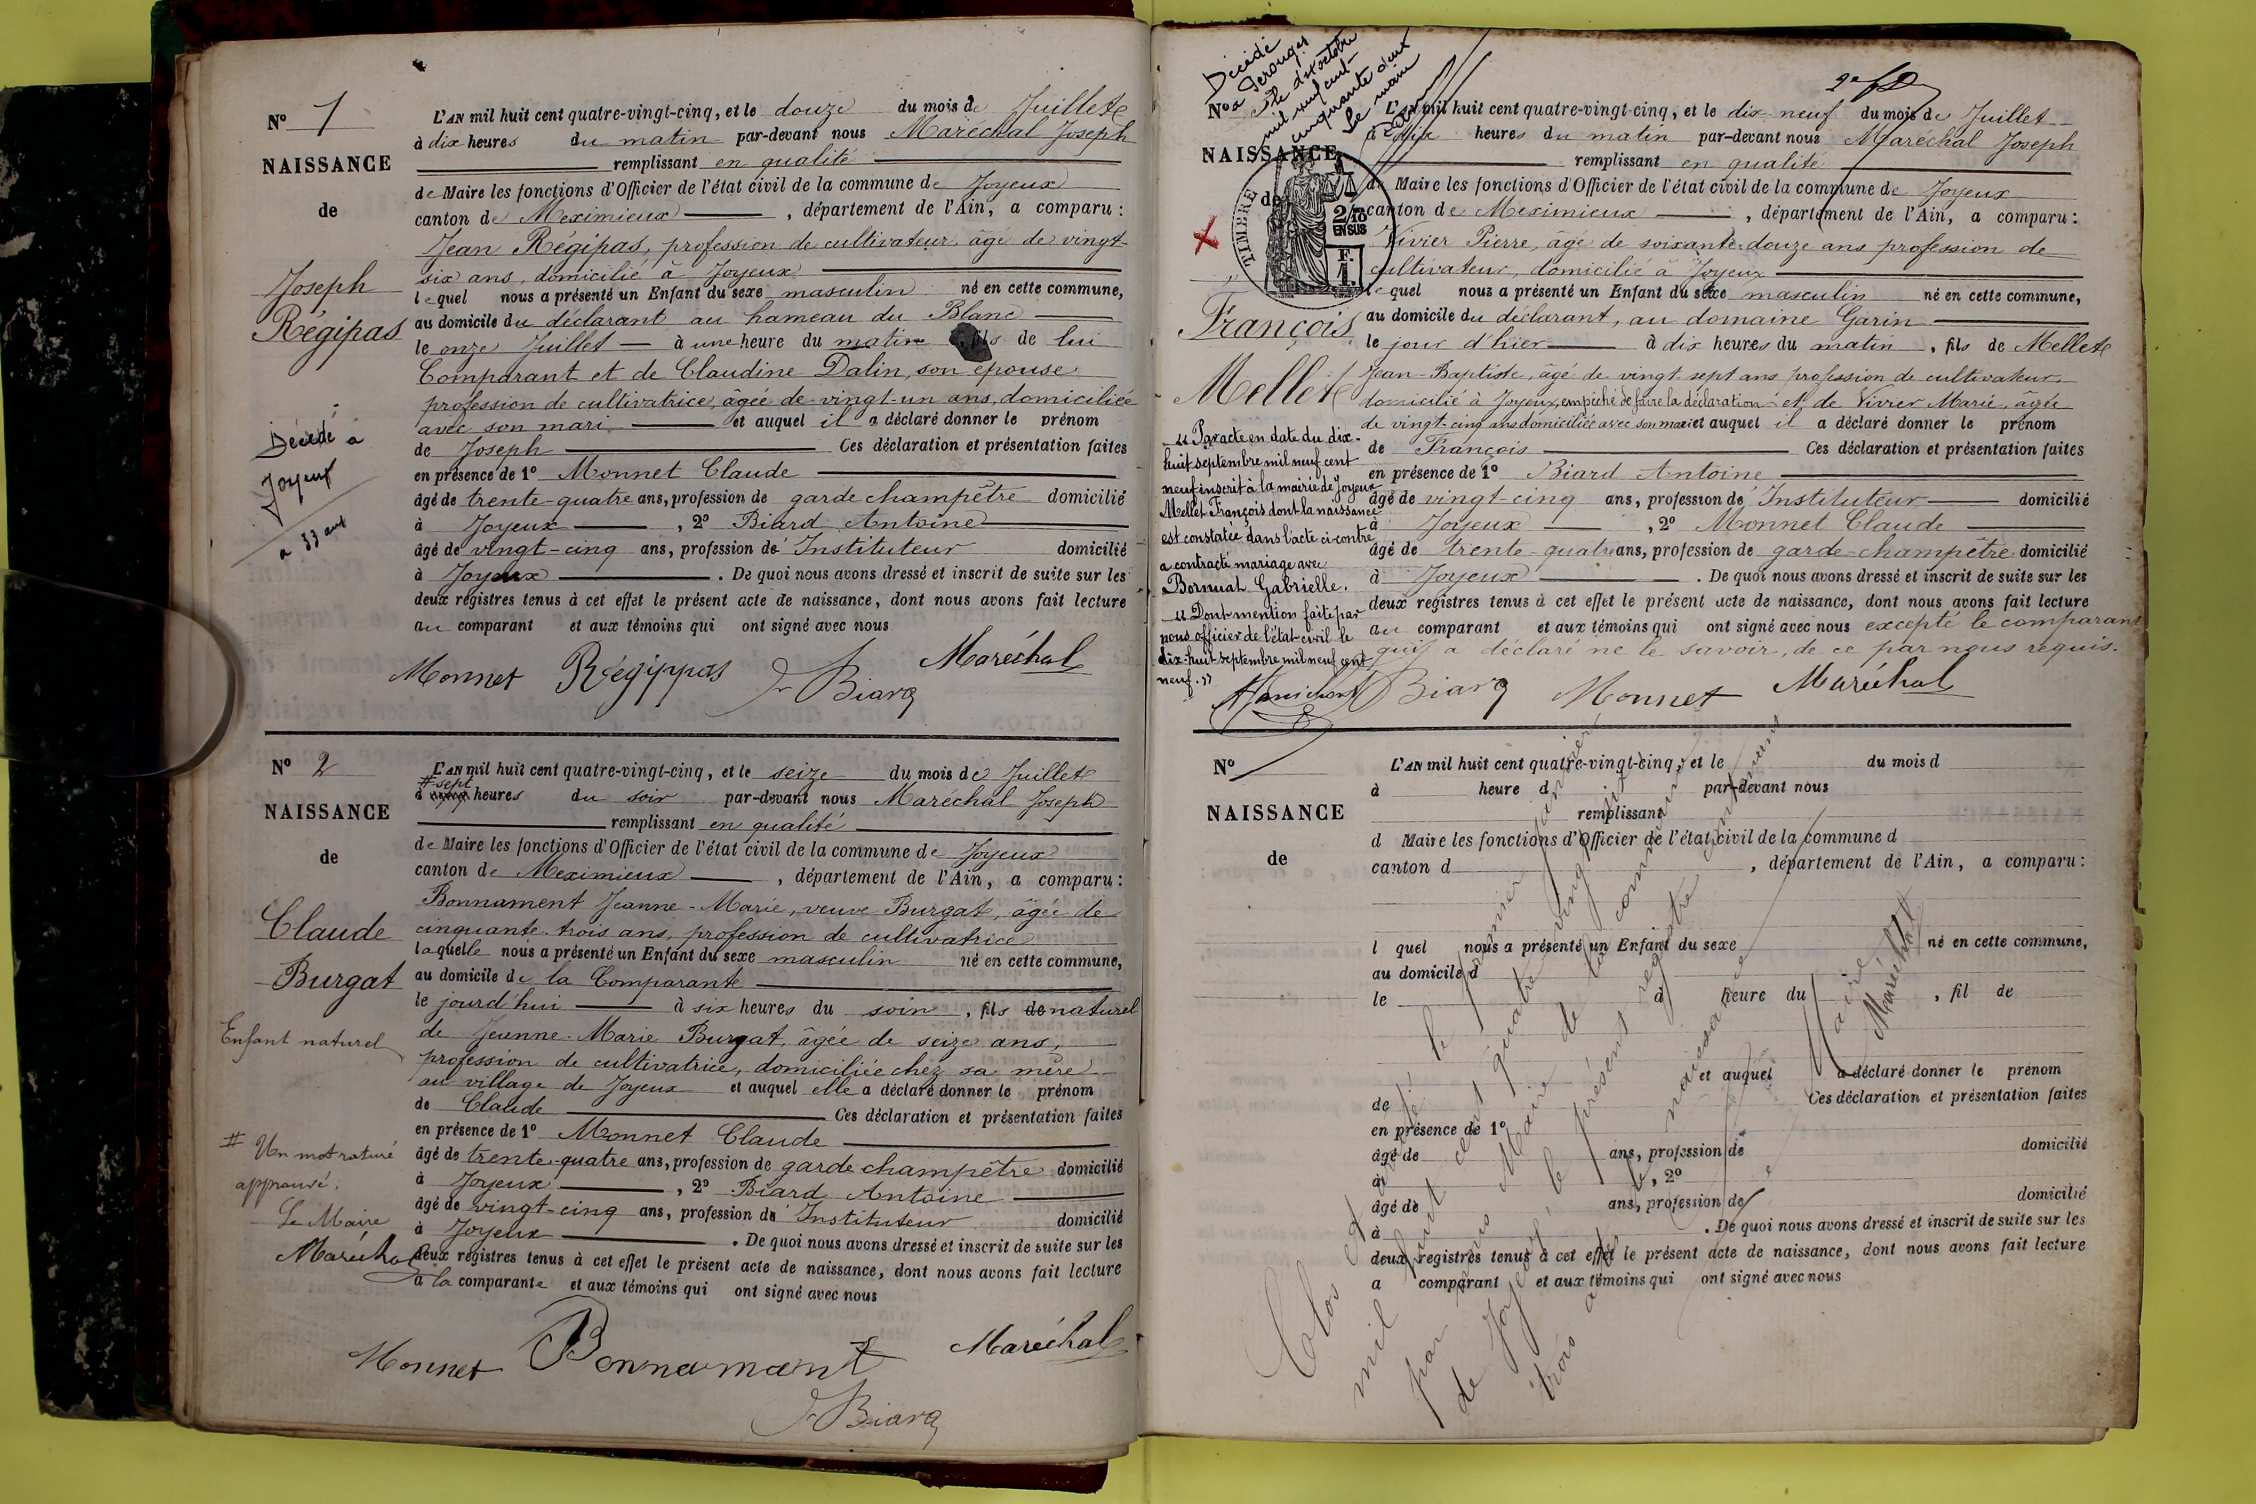 N° 1
NAISSANCE
de
Joseph
Régipas
Décédé à
Joyeux
a 33 ans
L'AN mil huit cent quatre-vingt-cinq, et le douze du mois de Juillet
à dix heures du matin par-devant nous Maréchal Joseph
remplissant en qualité
de Maire les fonctions d'Officier de l'état civil de la commune de Joyeux
canton de Meximieux, département de l'Ain, a comparu :
Jean Régipas, profession de cultivateur, âgé de vingt-
six ans, domicilié à Joyeux
lequel nous a présenté un Enfant du sexe masculin né en cette commune,
au domicile du déclarant au hameau du Blanc
le onze Juillet à une heure du matin, fils de lui
Comparant et de Claudine Dalin, son épouse
profession de cultivatrice, âgée de vingt-un ans, domiciliée
avec son mari et auquel il a déclaré donner le prénom
de Joseph Ces déclaration et présentation faites
en présence de 1° Monnet Claude
âgé de trente-quatre ans, profession de garde champêtre domicilié
à Joyeux, 2° Biard Antoine
âgé de vingt-cinq ans, profession de Instituteur domicilié
à Joyeux. De quoi nous avons dressé et inscrit de suite sur les
deux registres tenus à cet effet le présent acte de naissance, dont nous avons fait lecture
au comparant et aux témoins qui ont signé avec nous
Monnet Régippas Biard Maréchal
N° 2
NAISSANCE
de
Claude
Burgat
Enfant naturel
# Un mot raturé
approuvé.
Le Maire
Maréchal
L'AN mil huit cent quatre-vingt-cinq, et le seize du mois de Juillet
# sept
à heures du soir par-devant nous Maréchal Joseph
remplissant en qualité
de Maire les fonctions d'Officier de l'état civil de la commune de Joyeux
canton de Meximieux, département de l'Ain, a comparu :
Bonnament Jeanne-Marie, veuve Burgat, âgée de
cinquante-trois ans, profession de cultivatrice
laquelle nous a présenté un Enfant du sexe masculin né en cette commune,
au domicile de la Comparante
le jourd'hui à six heures du soir, fils de naturel
de Jeanne-Marie Burgat, âgée de seize ans,
profession de cultivatrice, domiciliée chez sa mère
au village de Joyeux et auquel elle a déclaré donner le prénom
de Claude Ces déclaration et présentation faites
en présence de 1° Monnet Claude
âgé de trente-quatre ans, profession de garde champêtre domicilié
à Joyeux, 2° Biard Antoine
âgé de vingt-cinq ans, profession de Instituteur domicilié
à Joyeux. De quoi nous avons dressé et inscrit de suite sur les
deux registres tenus à cet effet le présent acte de naissance, dont nous avons fait lecture
à la comparante et aux témoins qui ont signé avec nous
Monnet Bonnamant Maréchal
Biard
Décédé
a Perouges
le dix octobre
mil neuf cent-
cinquante deux
Le maire
N°
NAISSANCE
de
TIMBRE
2/10
EN SUS
F.
1.
François
Mellet
"Par acte en date du dix-
huit septembre mil neuf cent
neuf inscrit à la mairie de Joyeux
Mellet François dont la naissance
est constatée dans l'acte ci-contre
a contracté mariage avec
Gabrielle.
"Dont mention faite par
nous officier de l'état-civil le
dix-huit septembre mil neuf cent
neuf."
L'AN mil huit cent quatre-vingt-cinq, et le dix-neuf du mois de Juillet
à heures du matin par-devant nous Maréchal Joseph
remplissant en qualité
de Maire les fonctions d'Officier de l'état civil de la commune de Joyeux
canton de Meximieux, département de l'Ain, a comparu :
Vivier Pierre, âgé de soixante-douze ans profession de
cultivateur, domicilié à Joyeux
lequel nous a présenté un Enfant du sexe masculin né en cette commune,
au domicile du déclarant, au domaine Garin
le jour d'hier à dix heures du matin, fils de Mellet
Jean-Baptiste, âgé de vingt-sept ans profession de cultivateur,
domicilié à Joyeux, empêché de faire la déclaration et de Vivier Marie, âgée
de vingt-cinq ans domiciliée avec son mari et auquel il a déclaré donner le prénom
de François Ces déclaration et présentation faites
en présence de 1° Biard Antoine
âgé de vingt-cinq ans, profession de Instituteur domicilié
à Joyeux, 2° Monnet Claude
âgé de trente-quatre ans, profession de garde-champêtre domicilié
à Joyeux. De quoi nous avons dressé et inscrit de suite sur les
deux registres tenus à cet effet le présent acte de naissance, dont nous avons fait lecture
au comparant et aux témoins qui ont signé avec nous excepté le comparant
qui a déclaré ne le savoir, de ce par nous requis.
Biard Monnet Maréchal
N°
NAISSANCE
de
L'AN mil huit cent quatre-vingt-cinq, et le du mois d
à heure d par-devant nous
remplissant
d Maire les fonctions d'Officier de l'état civil de la commune d
canton d, département de l'Ain, a comparu :
l quel nous a présenté un Enfant du sexe né en cette commune,
au domicile d
le à heure du, fil de
et auquel a déclaré donner le prénom
de Ces déclaration et présentation faites
en présence de 1°
âgé de ans, profession de domicilié
à, 2°
âgé de ans, profession de domicilié
à. De quoi nous avons dressé et inscrit de suite sur les
deux registres tenus à cet effet le présent acte de naissance, dont nous avons fait lecture
a comparant et aux témoins qui ont signé avec nous
Clos et arrêté le premier janvier
mil huit cent quatre vingt six
par nous Maire de la commune
de Joyeux, le présent registre contenant
trois actes de naissance
Le Maire
Maréchal